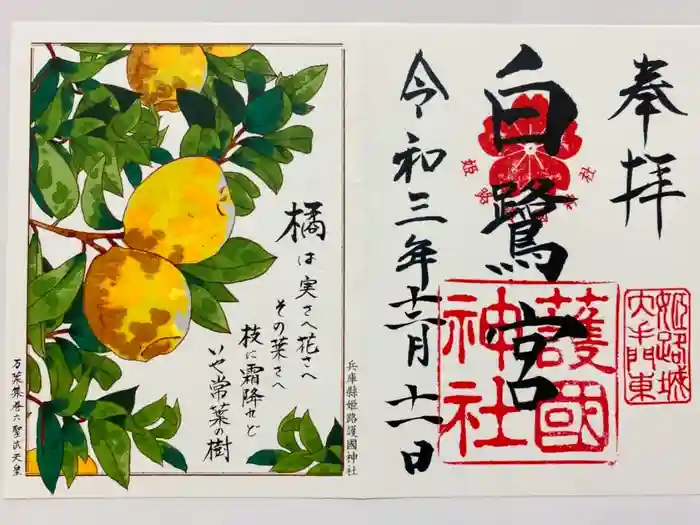 奉拝
白鷺宮
令和三年十二月十一日
姫路
護國
神社
姫路城
大手門東
橘は実さへ花さへ
その葉さへ
枝に霜降れど
いや常葉の樹
兵庫縣姫路護國神社
万葉集巻六聖武天皇